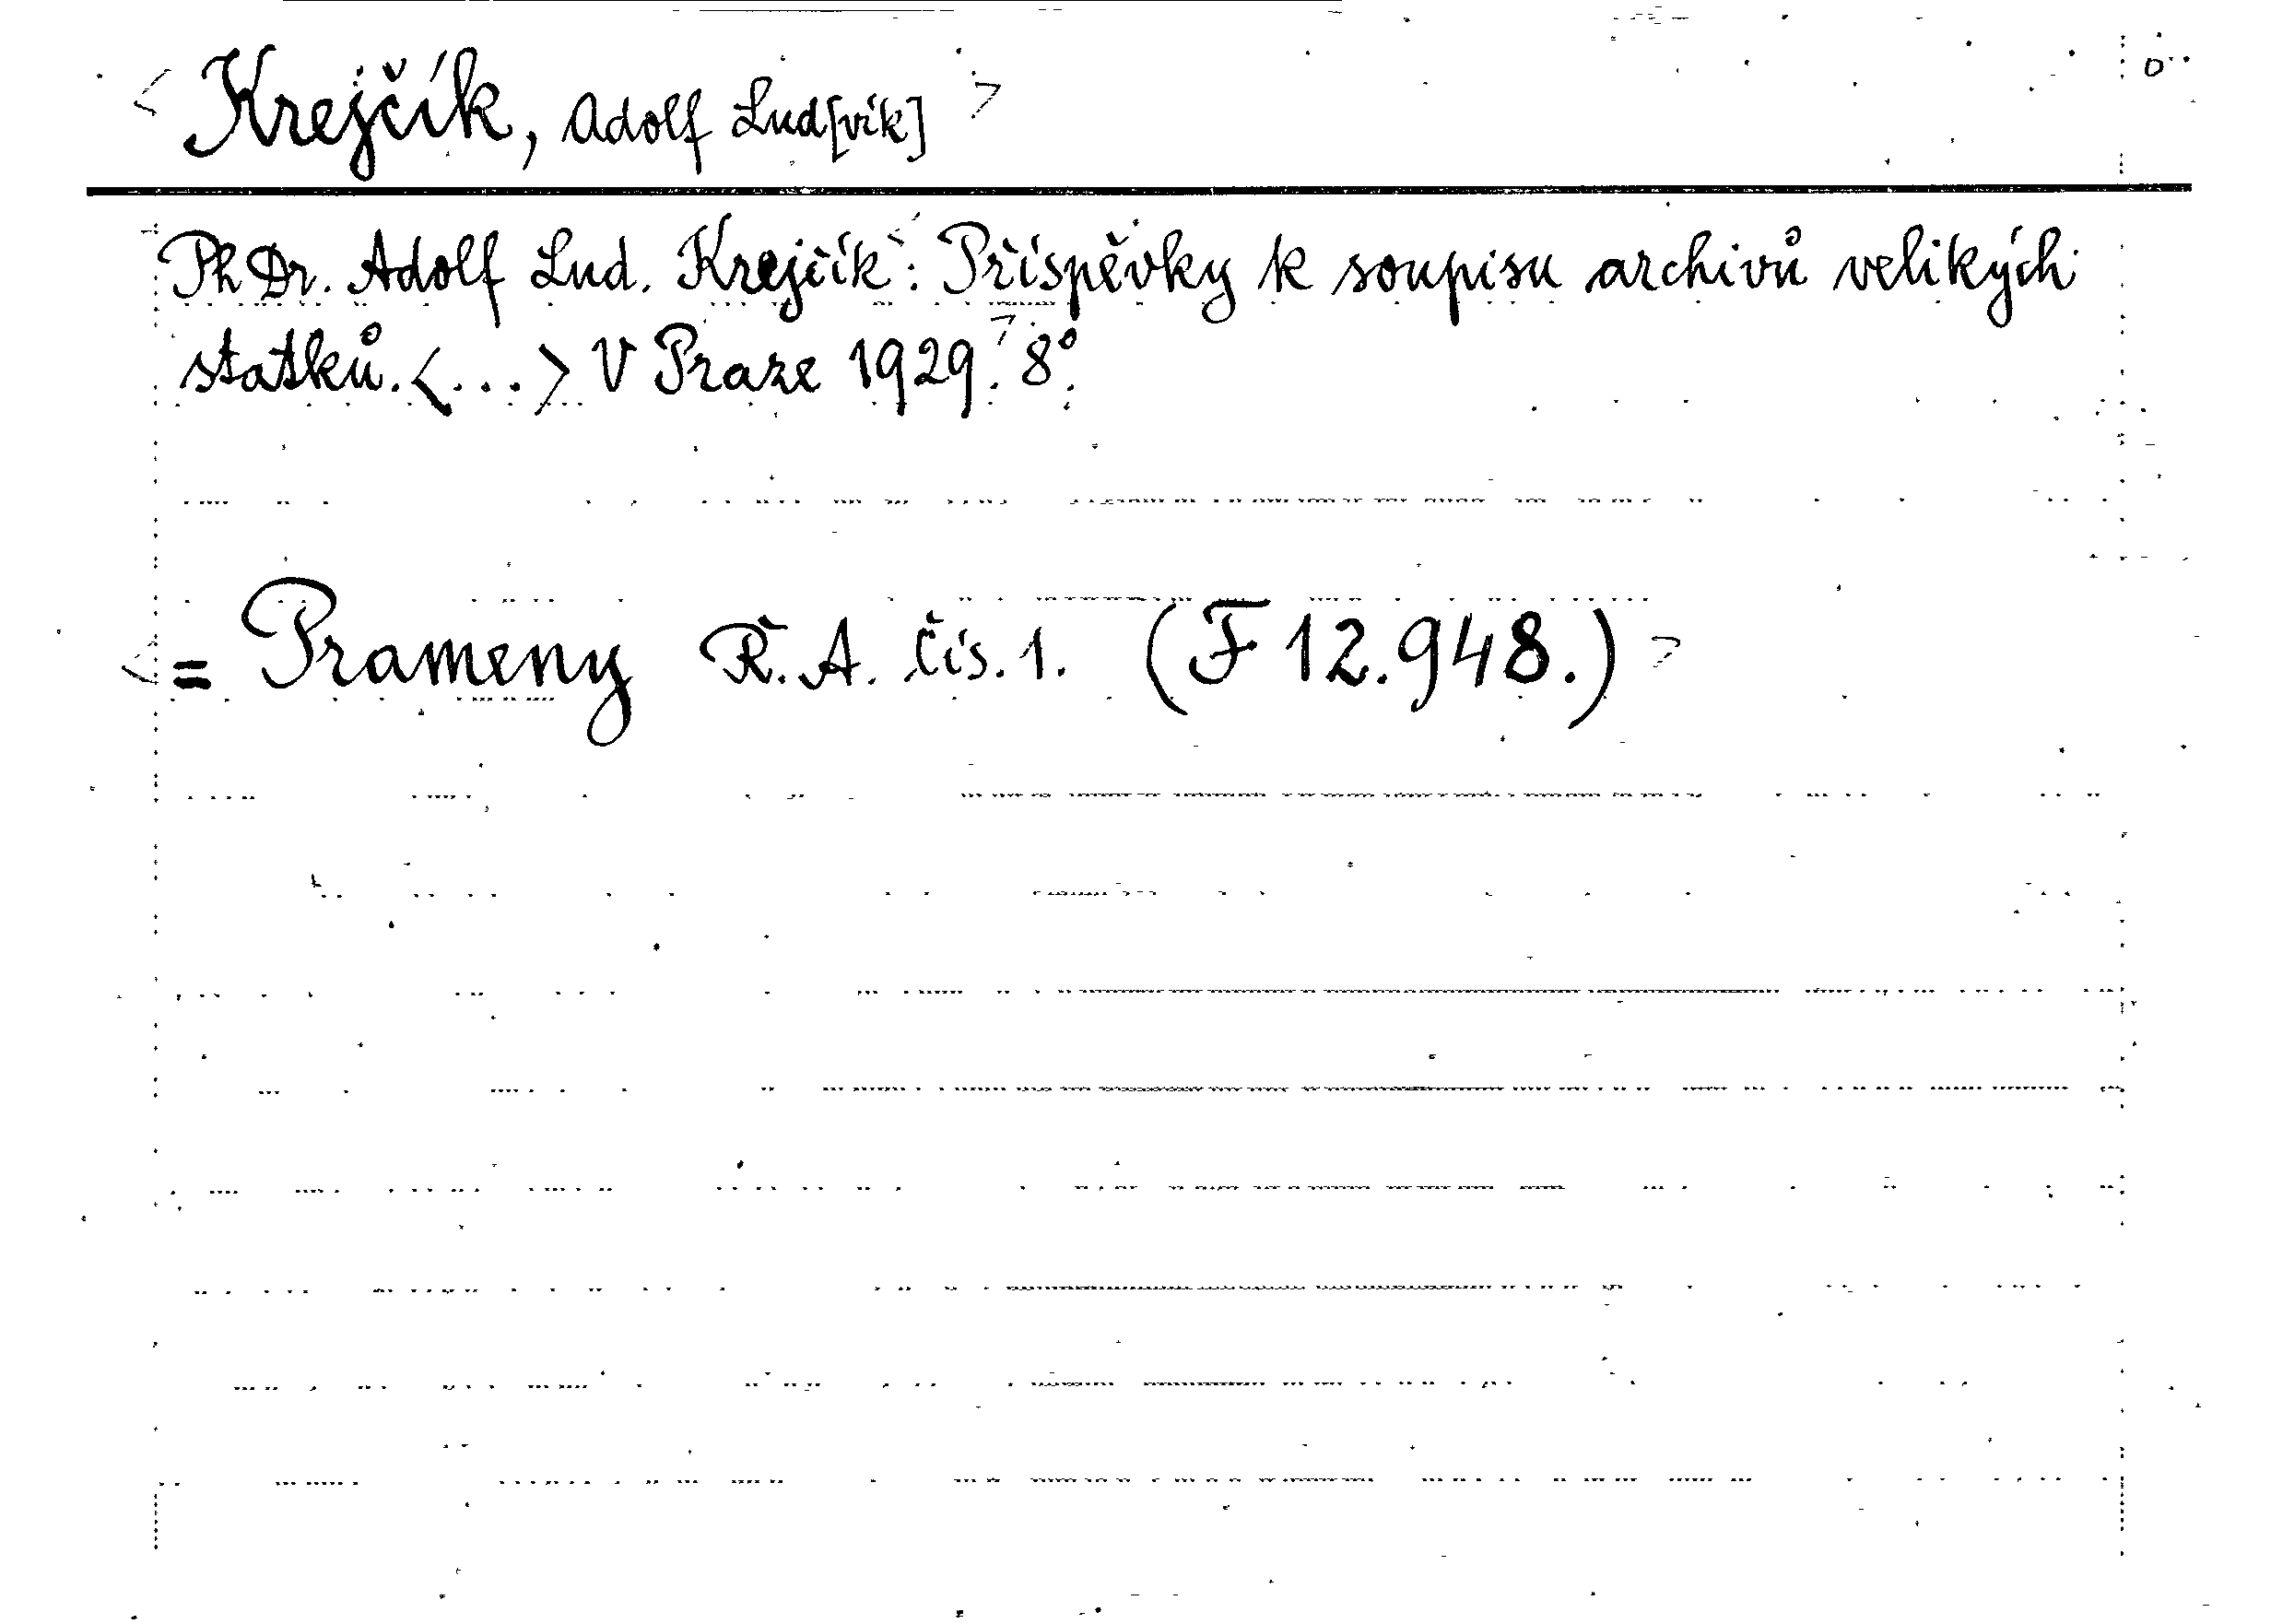 < Krejčík, Adolf Lud[vík] >
PhDr. Adolf Lud. Krejčík: Příspěvky k soupisu archivů velikých
statků. <...> V Praze 1929. 8°.
= Prameny Ř. A. čís. 1. (F 12.948.)